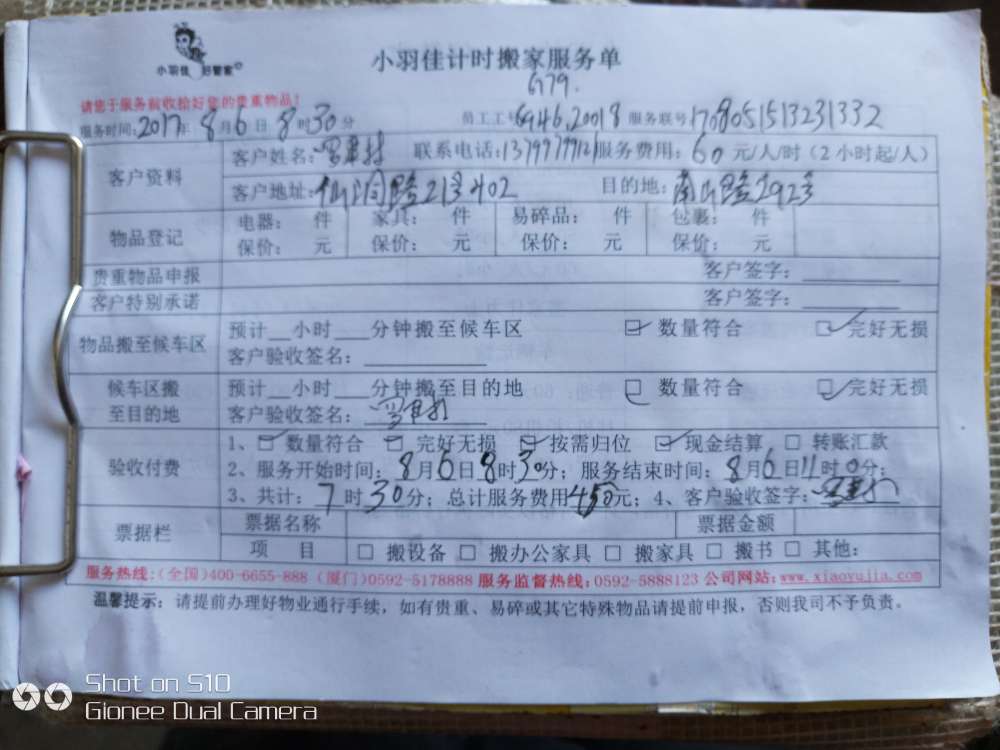 小羽佳 好管家
小羽佳计时搬家服务单
679.
请您于服务前收拾好您的贵重物品！
服务时间：2017年8月6日8时30分 员工工号6946,20018 服务联号170805151323 1332
客户资料 客户姓名： 联系电话： 服务费用：60元/人/时（2小时起/人）
客户地址：仙洞路21号402 目的地：南山路292号
物品登记 电器： 件 家具： 件 易碎品： 件 包裹： 件
保价： 元 保价： 元 保价： 元 保价： 元
贵重物品申报 客户签字：
客户特别承诺 客户签字：
物品搬至候车区 预计__小时___分钟搬至候车区 数量符合 完好无损
客户验收签名：
候车区搬至目的地 预计__小时___分钟搬至目的地 数量符合 完好无损
客户验收签名：
验收付费 1、数量符合 完好无损 按需归位 现金结算 转账汇款
2、服务开始时间：8月6日8时30分；服务结束时间：8月6日11时0分；
3、共计：7时30分；总计服务费用450元；4、客户验收签字：
票据栏 票据名称 票据金额
项 目 搬设备 搬办公家具 搬家具 搬书 其他：
服务热线：(全国)400-6655-888 (厦门)0592-5178888 服务监督热线：0592-5888123 公司网站：www.xiaoyujia.com
温馨提示：请提前办理好物业通行手续，如有贵重、易碎或其它特殊物品请提前申报，否则我司不予负责。
Shot on S10
Gionee Dual Camera